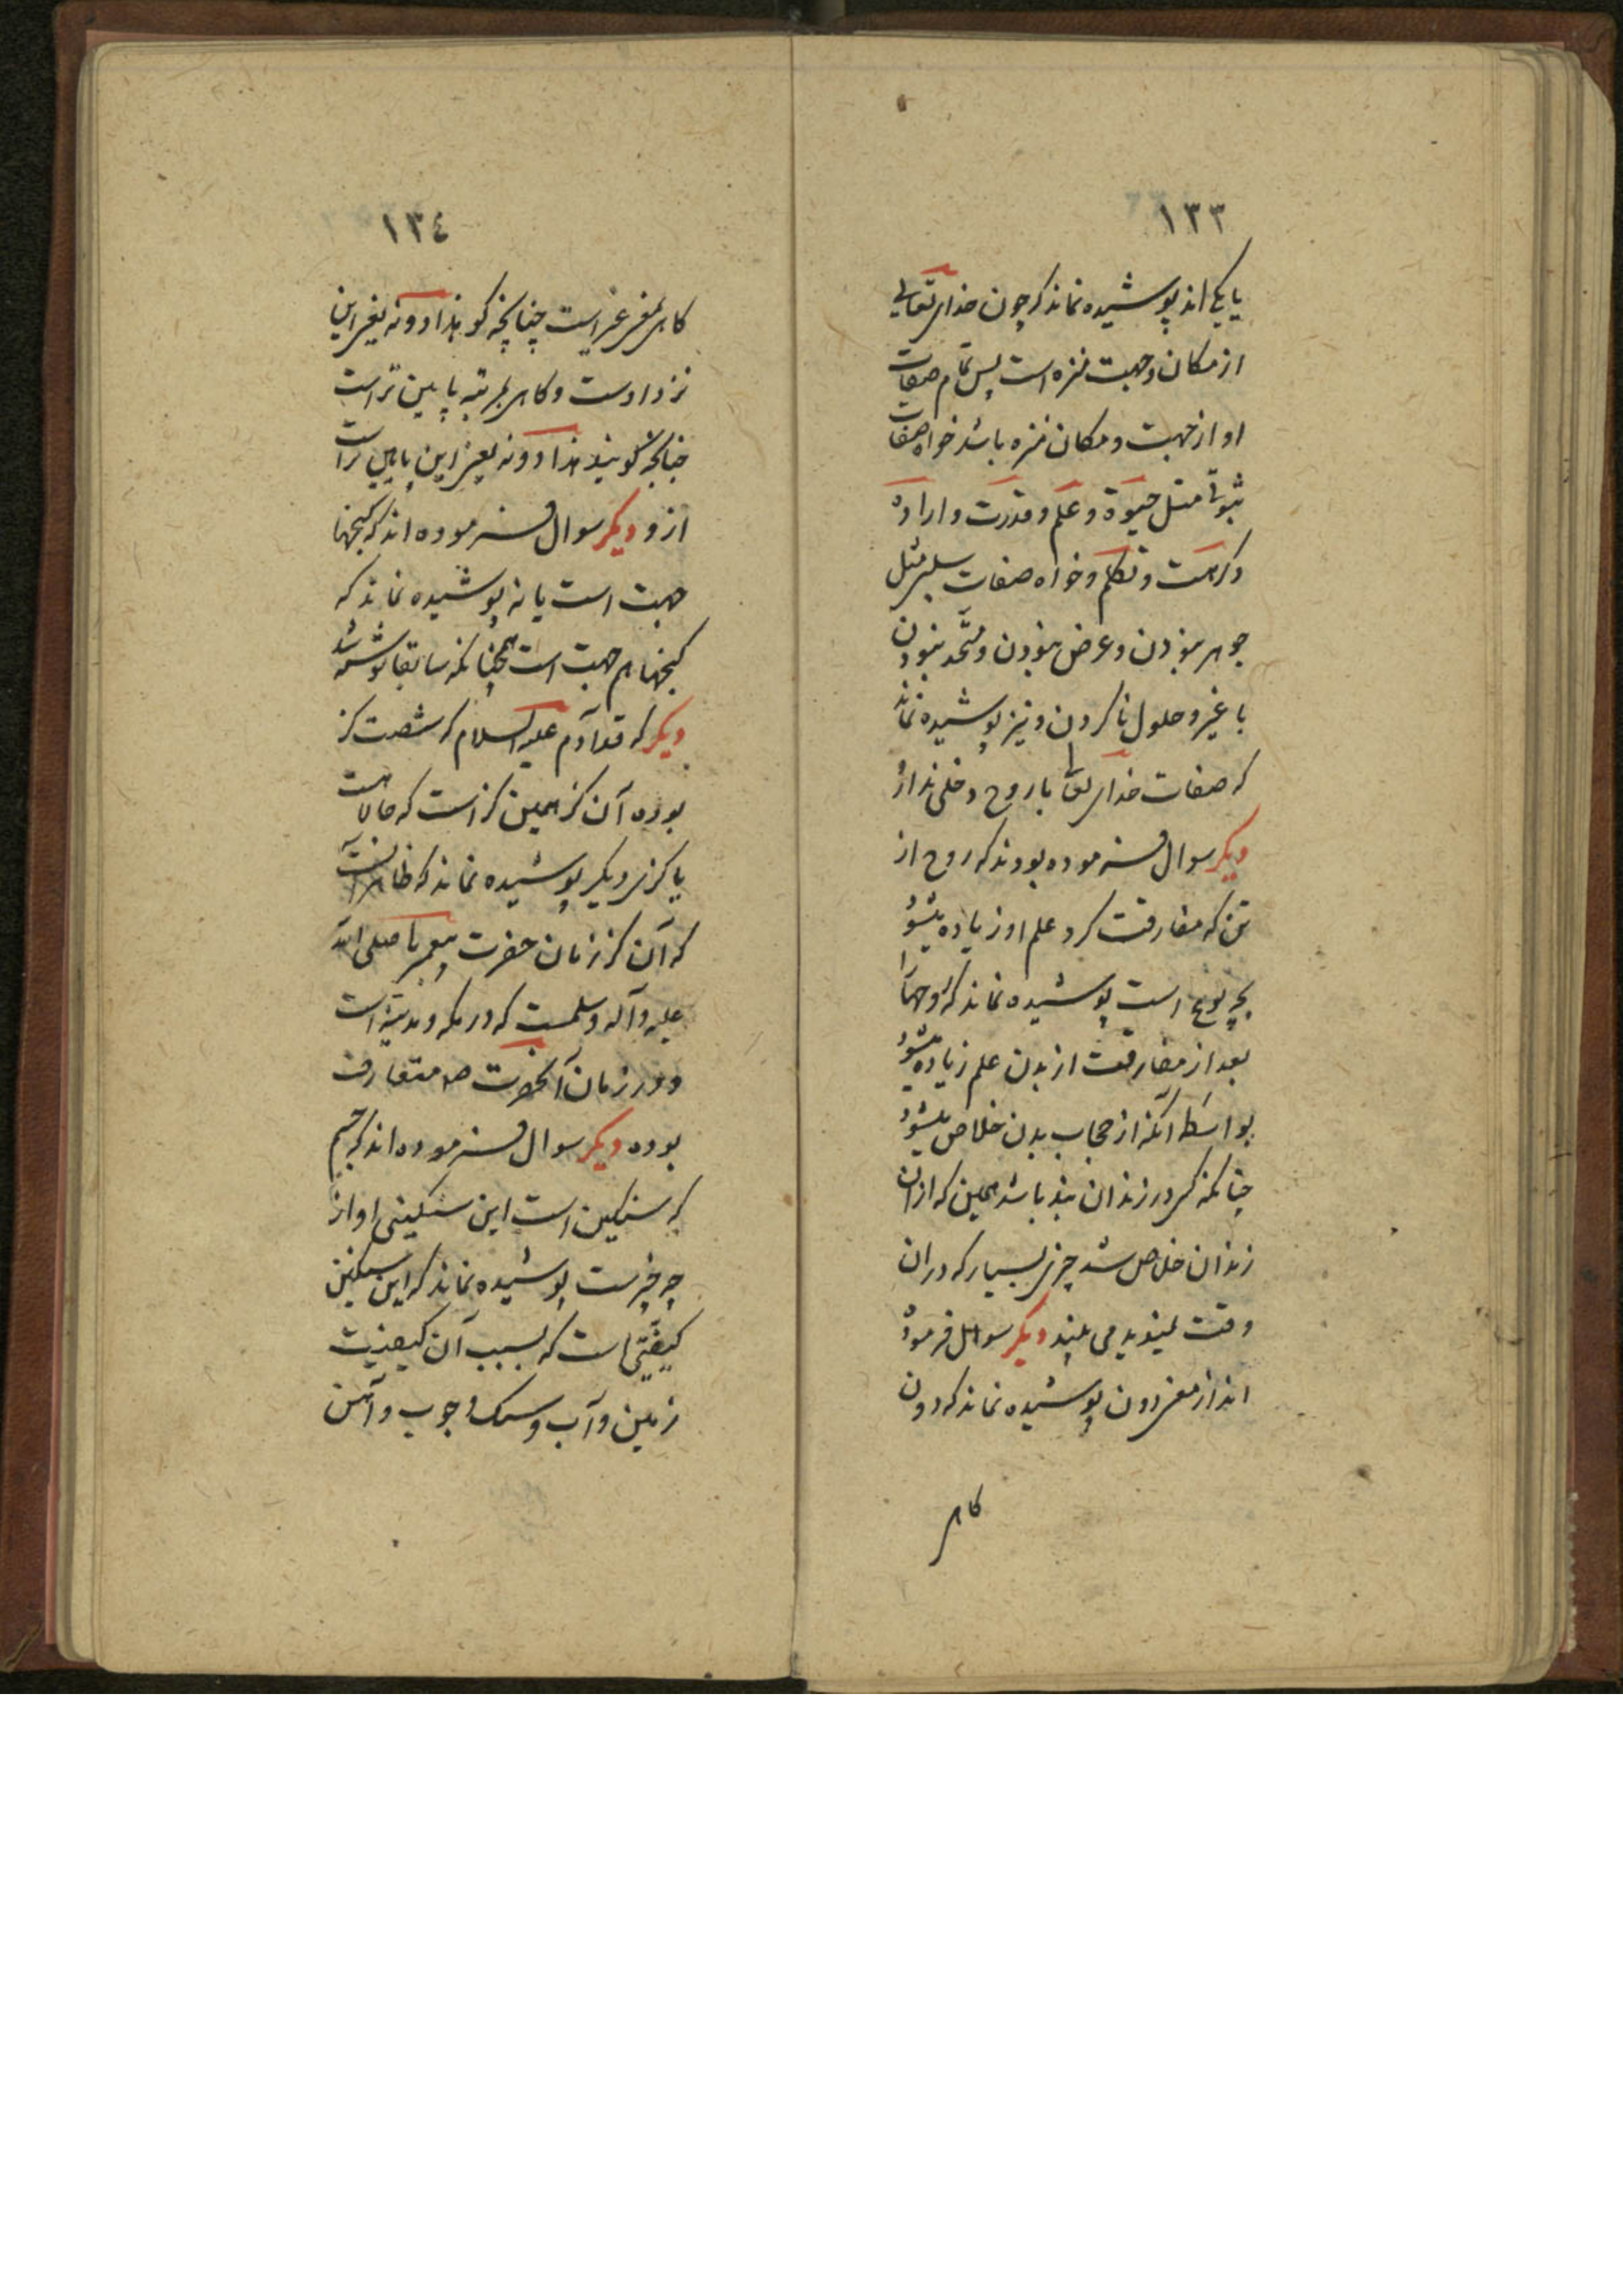 ١٣٣
یا یکی‌اند پوشیده نماند که چون خدای تعالی
از مکان و جهت منزه است پس تمام صفات
او از جهت و مکان منزه باشد خواه صفات
ثبوتی مثل حیوة و علم و قدرت و اراده
و کراهت و تکلم و خواه صفات سلبی مثل
جوهر نبودن و عرض نبودن و متحد نبودن
با غیر و حلول ناکردن و نیز پوشیده نماند
که صفات خدای تعالی با روح دخلی ندارد
دیکر سوال فرموده بودند که روح از
تن که مفارقت کرد علم او زیاده میشود
بچه نوع است پوشیده نماند که روحها
بعد از مفارقت از بدن علم زیاده میشود
بواسطه آنکه از حجاب بدن خلاص میشود
چنانکه کسی در زندان بند باشد همین که از آن
زندان خلاص شد چیزی بسیار که در آن
وقت نمیدید می بیند دیکر سوال فرموده
اند از معنی دون پوشیده نماند که دون
کاهی
١٣٤
کاهی بمعنی غیر است چنانچه کویند هذا دونه یعنی این
نزد اوست و کاهی بمرتبه پایین تر است
چنانچه کویند هذا دونه یعنی این پایین تر است
ازو دیکر سوال فرموده‌اند که کنجها
جهت است یا نه پوشیده نماند که
کنجها هم جهت است همچنانکه سابقا نوشته شد
دیکر که قد آدم علیه السلام که شصت کز
بوده آن کز همین کز است که حالا هست
یا کزی دیکر پوشیده نماند که ظاهر آنست
که آن کز زمان حضرت پیغمبر ما صلی الله
علیه وآله وسلمست که در مکه و مدینه است
و در زمان آنحضرت ص متعارف
بوده دیکر سوال فرموده‌اند که جسم
که سنکین است این سنکینی او از
چه چیزست پوشیده نماند که این سنکینی
کیفیتی است که بسبب آن کیفیت
زمین و آب و سنک و چوب و آهن